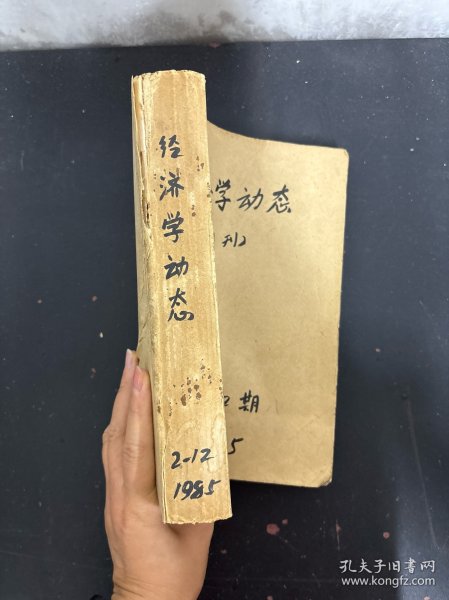 经济学动态
2-12
1985
学动态
刊2
2期
5
孔夫子旧书网
www.kongfz.com